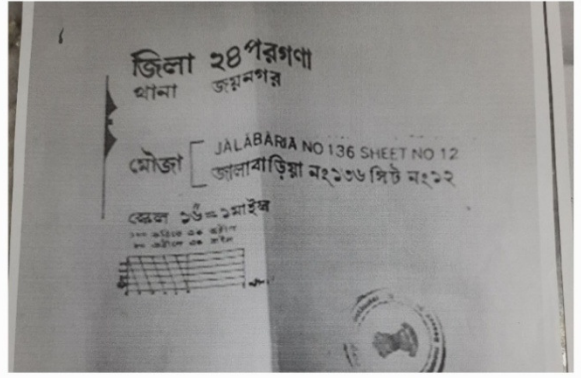 জিলা ২৪ পরগণা
থানা জয়নগর
মৌজা
JALABARIA NO 136 SHEET NO 12
জালাবাড়িয়া নং১৩৬ সিট নং১২
স্কেল ১৬"=১মাইল